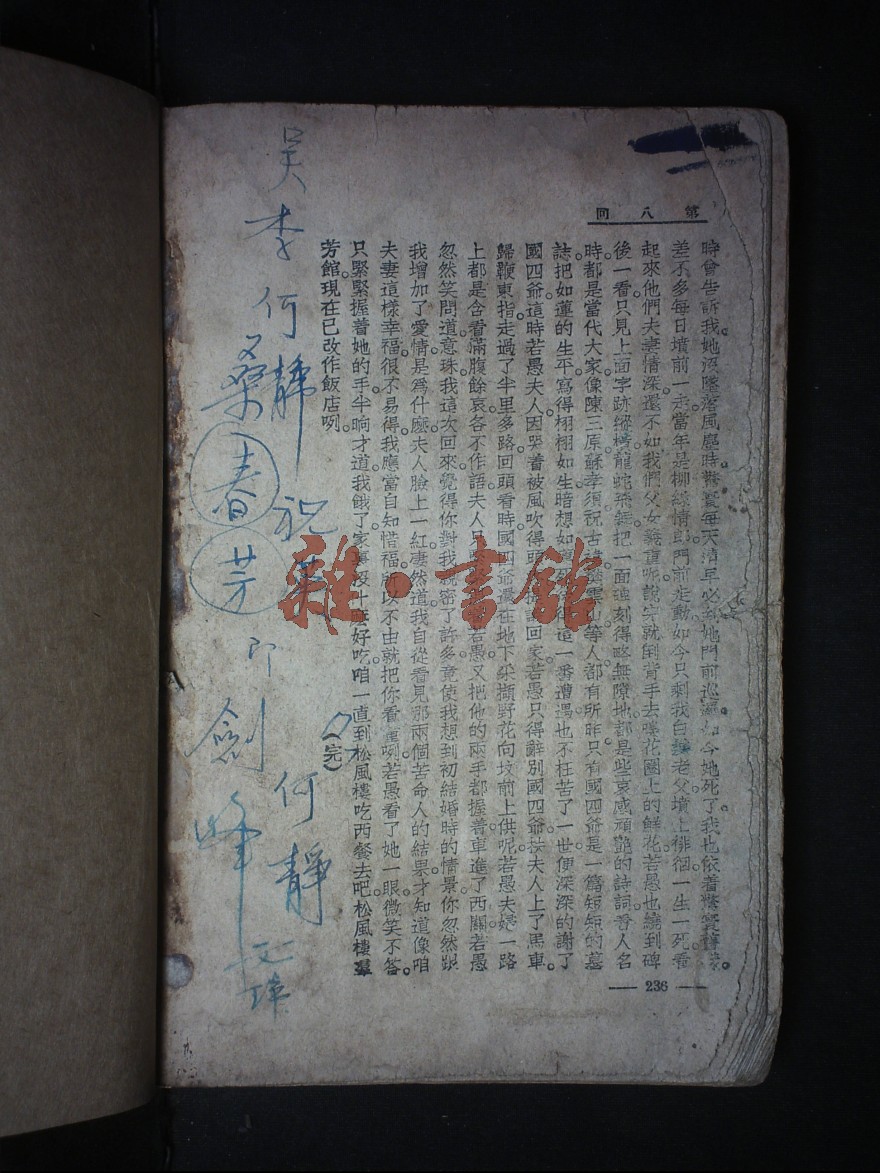 第八回
時曾告訴我她沒墜落風塵時每天清早必到她門前巡視如今她死了我也依着
差不多每日墳前一走當年是柳綠情郎門前走動如今只剩我白老父墳上徘徊一生一死看
起來他們夫妻情深還不如我們父女義重呢說完就倒背手去踩花園上的鮮花若愚也繞到碑
後一看只見上面字跡縱橫龍蛇飛舞把一面碑刻得略無隙地都是些哀感頑艷的詩詞看人名
時都是當代大家像陳三原蘇孝須祝古雪山等人都有所昨只有國四爺是一篇短短的墓
誌把如蓮的生平寫得栩栩如生暗想如得這一番遭遇也不枉苦了一世便深深的謝了
國四爺。這時若愚夫人因哭着被風吹得頭回家若愚只得辭別國四爺扶夫人上了馬車。
歸鞭東指走過了半里多路回頭看時國四爺還在地下采擷野花向坟前上供呢若愚夫婦一路
上都是含着滿腹餘哀各不作語夫人只若愚又把他的兩手都握着車進了西關若愚
忽然笑問道意珠我這次回來覺得你對我親密了許多竟使我想到初結婚時的情景你忽然跟
我增加了愛情是爲什麽夫人臉上一紅凄然道我自從看見那兩個苦命人的結果才知道像咱
夫妻這樣幸福很不易得我應當自知惜福所以不由就把你看重咧若愚看了她一眼微笑不答
只緊緊握着她的手半晌才道我餓了家裏沒什麽好吃咱一直到松風樓吃西餐去吧松風樓羣
芳館現在已改作飯店咧。
(完)
— 236 —
吳李何靜祝英
何靜
文璋
桑春芳印
劍峰
雜·書館